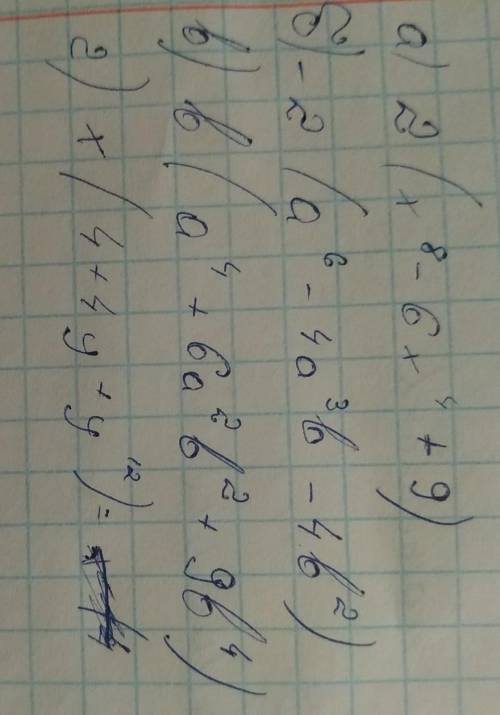 а) 2 (x⁸ - 6x⁴ + 9)
б) - 2 (a⁶ - 4a³b - 4b²)
в) b (a⁴ + 6a²b² + 9b⁴)
г) x (4 + 4y + y²) =